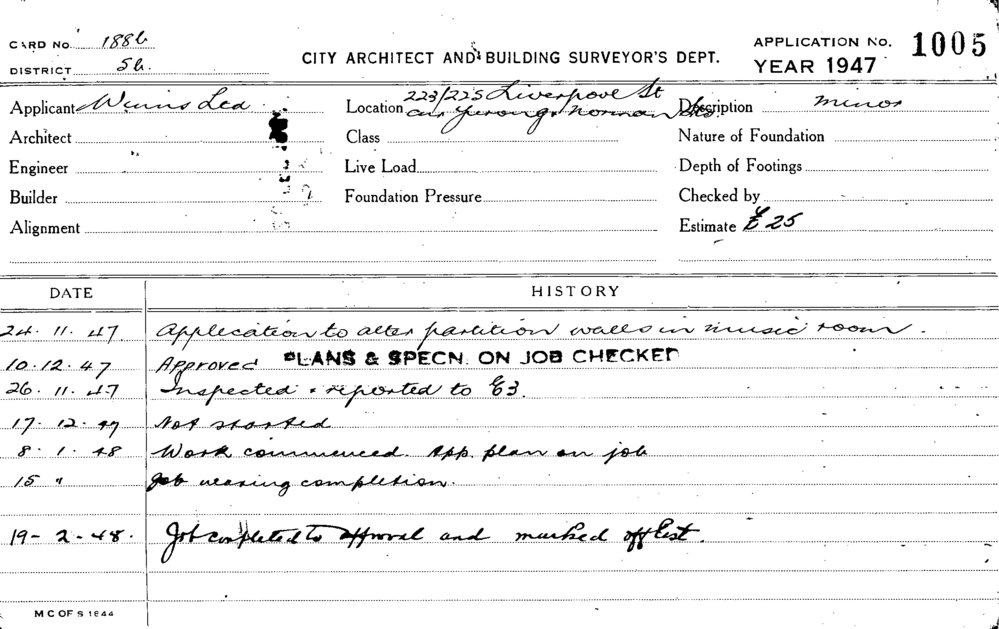 CARD No. 1886
DISTRICT 5b.
CITY ARCHITECT AND BUILDING SURVEYOR'S DEPT.
APPLICATION No. 1005
YEAR 1947
Applicant Winns Ltd
Location 223/225 Liverpool St
cnr Yurong & Norman Sts.
Description minor
Architect
Class
Nature of Foundation
Engineer
Live Load
Depth of Footings
Builder
Foundation Pressure
Checked by
Alignment
Estimate £25
DATE HISTORY
24. 11. 47 Application to alter partition walls in music room.
10.12.47 Approved PLANS & SPECN. ON JOB CHECKED
26. 11. 47 Inspected & reported to E3.
17. 12. 47 Not started
8. 1. 48 Work commenced. App. plan on job
15 " Job nearing completion.
19-2-48. Job completed to approval and marked off list.
M C OF S 1844